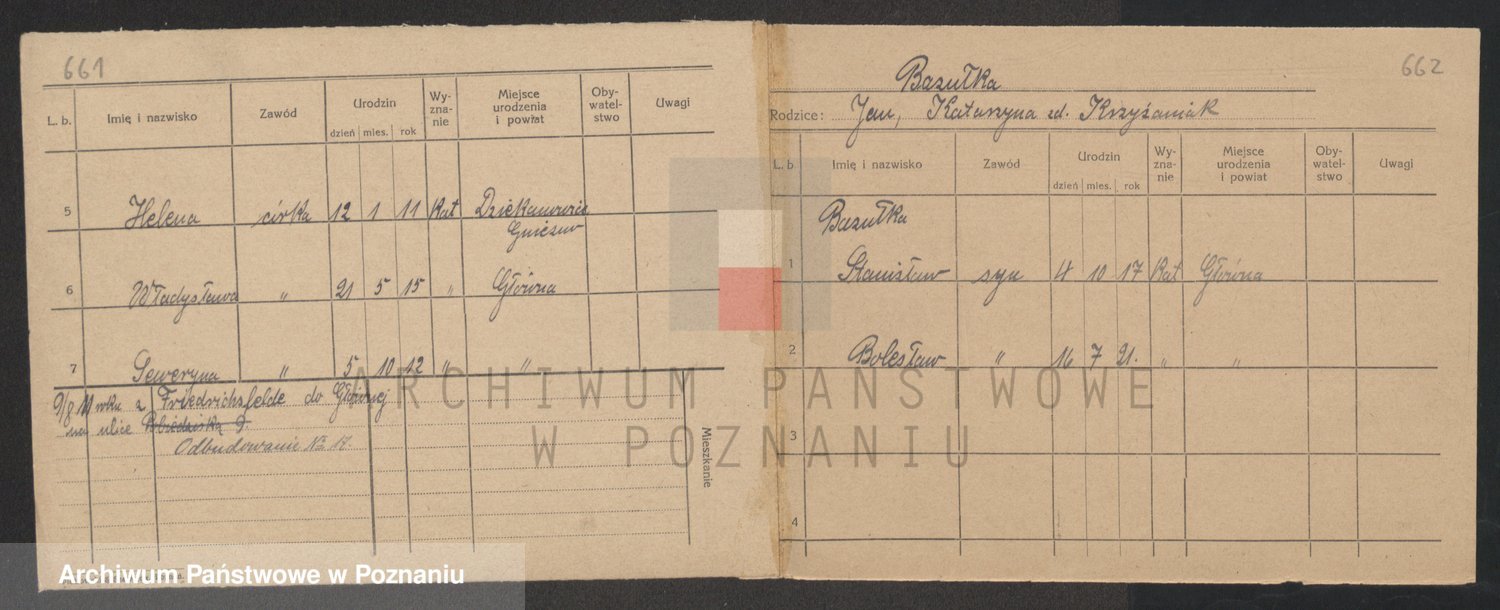 661
L. b. Imię i nazwisko Zawód Urodzin dzień mies. rok Wyznanie Miejsce urodzenia i powiat Obywatelstwo Uwagi
5 Helena córka 12 1 11 kat
Gniezno
6 Władysława " 21 5 15 " Główna
7 Seweryna " 5 10 12 " "
9/8 11 roku z Friedrichsfelde do Głównej
na ulice 9.
Odbudowanie No
Mieszkanie
662
Bazułka
Rodzice: Jan, Katarzyna zd. Krzyżaniak
L. b. Imię i nazwisko Zawód Urodzin dzień mies. rok Wyznanie Miejsce urodzenia i powiat Obywatelstwo Uwagi
Bazułka
1 Stanisław syn 4 10 17 kat Główna
2 Bolesław " 16 7 21. " "
3
4
ARCHIWUM PAŃSTWOWE
W POZNANIU
Archiwum Państwowe w Poznaniu